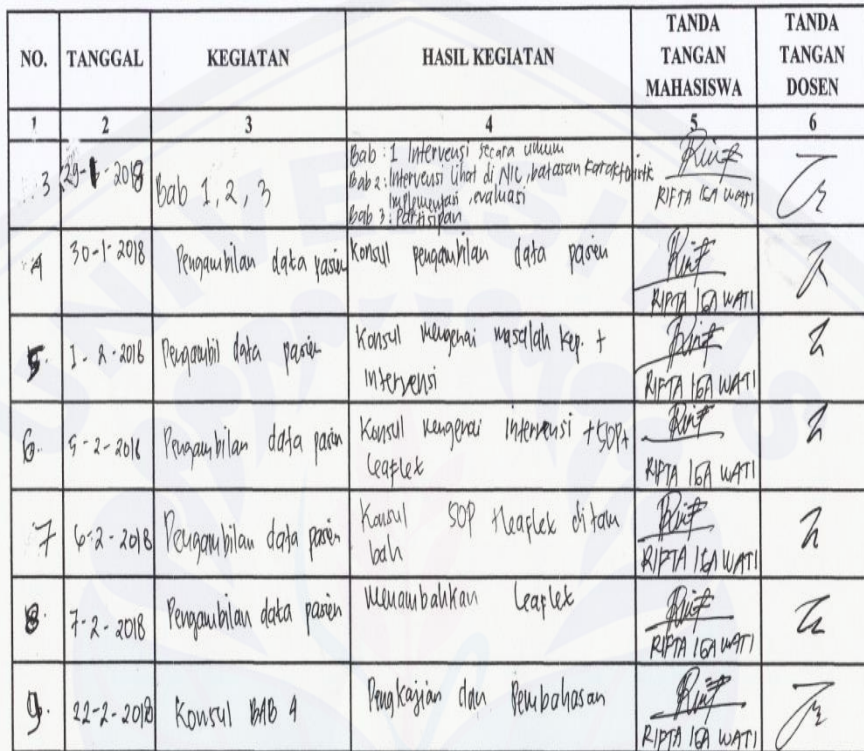 NO. TANGGAL KEGIATAN HASIL KEGIATAN TANDA TANGAN MAHASISWA TANDA TANGAN DOSEN
1 2 3 4 5 6
3 29-1-2018 Bab 1, 2, 3
Bab : 1 Intervensi secara umum
Bab 2 : Intervensi lihat di NIC, batasan karakteristik
Implementasi, evaluasi
Bab 3 : Partisipan
RIFTA IGA WATI
4 30-1-2018 Pengambilan data pasien Konsul pengambilan data pasien
RIFTA IGA WATI
5. 1-2-2018 Pengambil data pasien Konsul mengenai masalah kep. +
Intervensi
RIFTA IGA WATI
6. 5-2-2018 Pengambilan data pasien Konsul mengenai intervensi + SOP +
leaflet
RIFTA IGA WATI
7 6-2-2018 Pengambilan data pasien Konsul SOP + leaflet ditam
bah
RIFTA IGA WATI
8. 7-2-2018 Pengambilan data pasien Menambahkan leaflet
RIFTA IGA WATI
9. 22-2-2018 Konsul BAB 4 Pengkajian dan Pembahasan
RIFTA IGA WATI
UNIVERSITAS